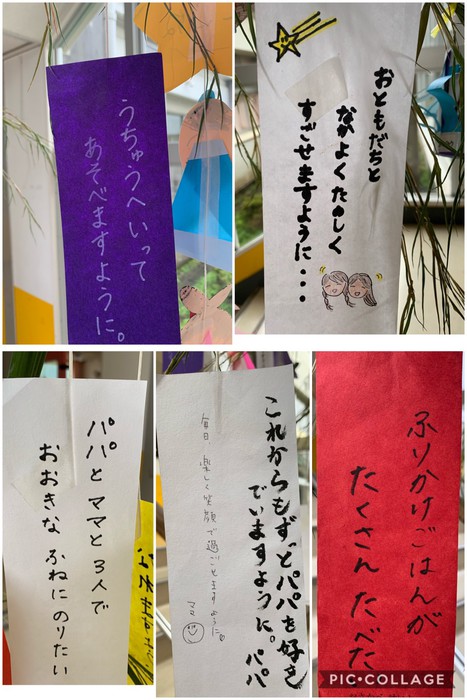 うちゅうへいって
あそべますように。
おともだちと
なかよくたのしく
すごせますように・・・
パパとママと3人で
おおきなふねにのりたい
これからもずっとパパを好き
でいますように。パパ
毎日、楽しく笑顔で過ごせますように。
ママ
ふりかけごはんが
たくさんたべた
PIC•COLLAGE